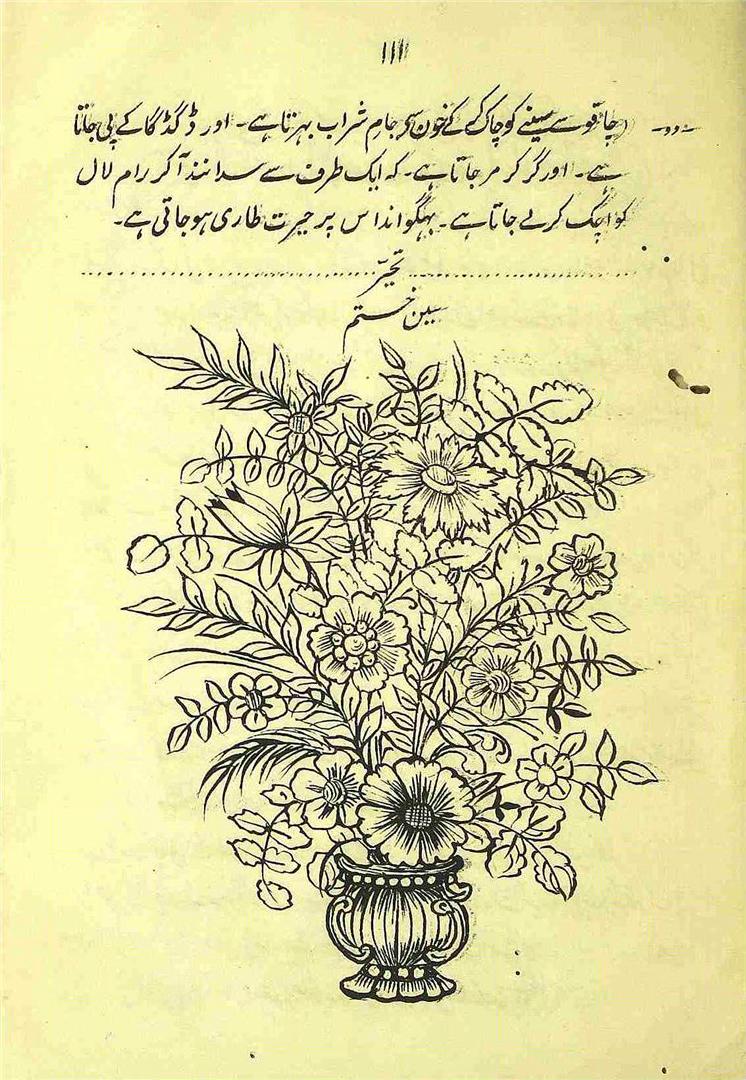 ۱۱۱
(چاقو سے سینے کو چاک کر کے خون سے جامِ شراب بھرتا ہے۔ اور ڈگڈگا کے پی جاتا
ہے۔ اور گر کر مر جاتا ہے۔ کہ ایک طرف سے سدانند آ کر رام لال
کو اچک کر لے جاتا ہے۔ بھگوانداس پر حیرت طاری ہو جاتی ہے۔
تحیّر
سین ختم